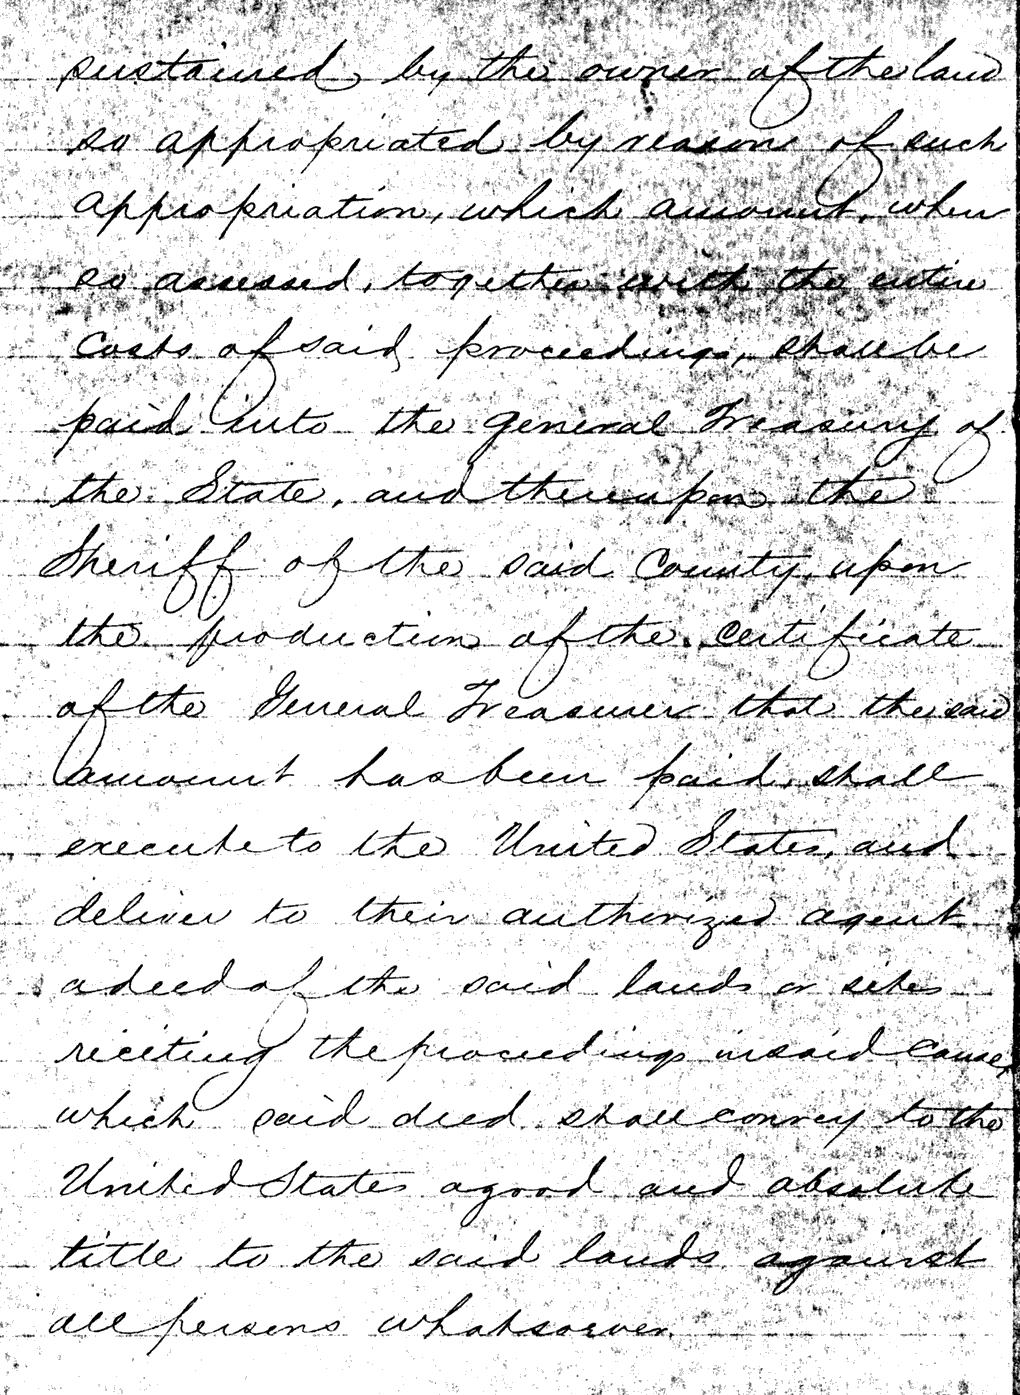 sustained, by the owner of the land
so appropriated by reason of such
appropriation, which amount, when
so assessed, together with the entire
costs of said proceedings, shall be
paid into the general Treasury of
the State, and thereupon the
Sheriff of the said County, upon
the production of the certificate
of the General Treasurer that the said
amount has been paid, shall
execute to the United States, and
deliver to their authorized agent
a deed of the said lands or sites
reciting the proceedings in said cause,
which said deed shall convey to the
United States a good and absolute
title to the said lands against
all persons whatsoever.